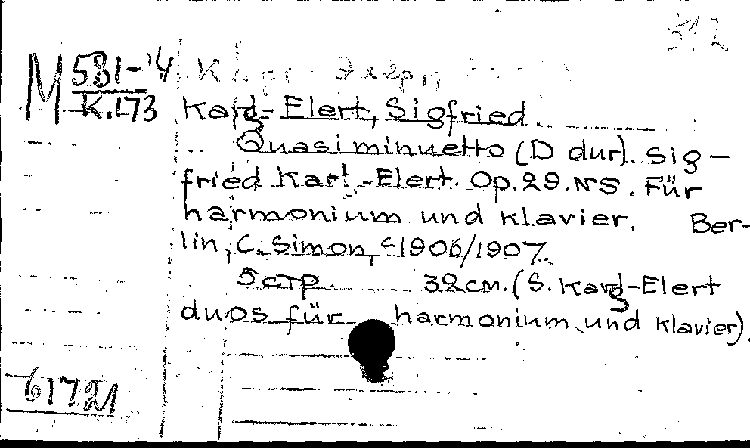 512
M 581-4
K.173
Karg-Elert, Sigfried
Quasi minuetto (D dur). Sig-
fried Karl-Elert. Op.29. N5. Für
harmonium und klavier. Ber-
lin, C. Simon, c1906/1907.
5 стр 32 см. (S. Karg-Elert
duos für harmonium und klavier).
61721